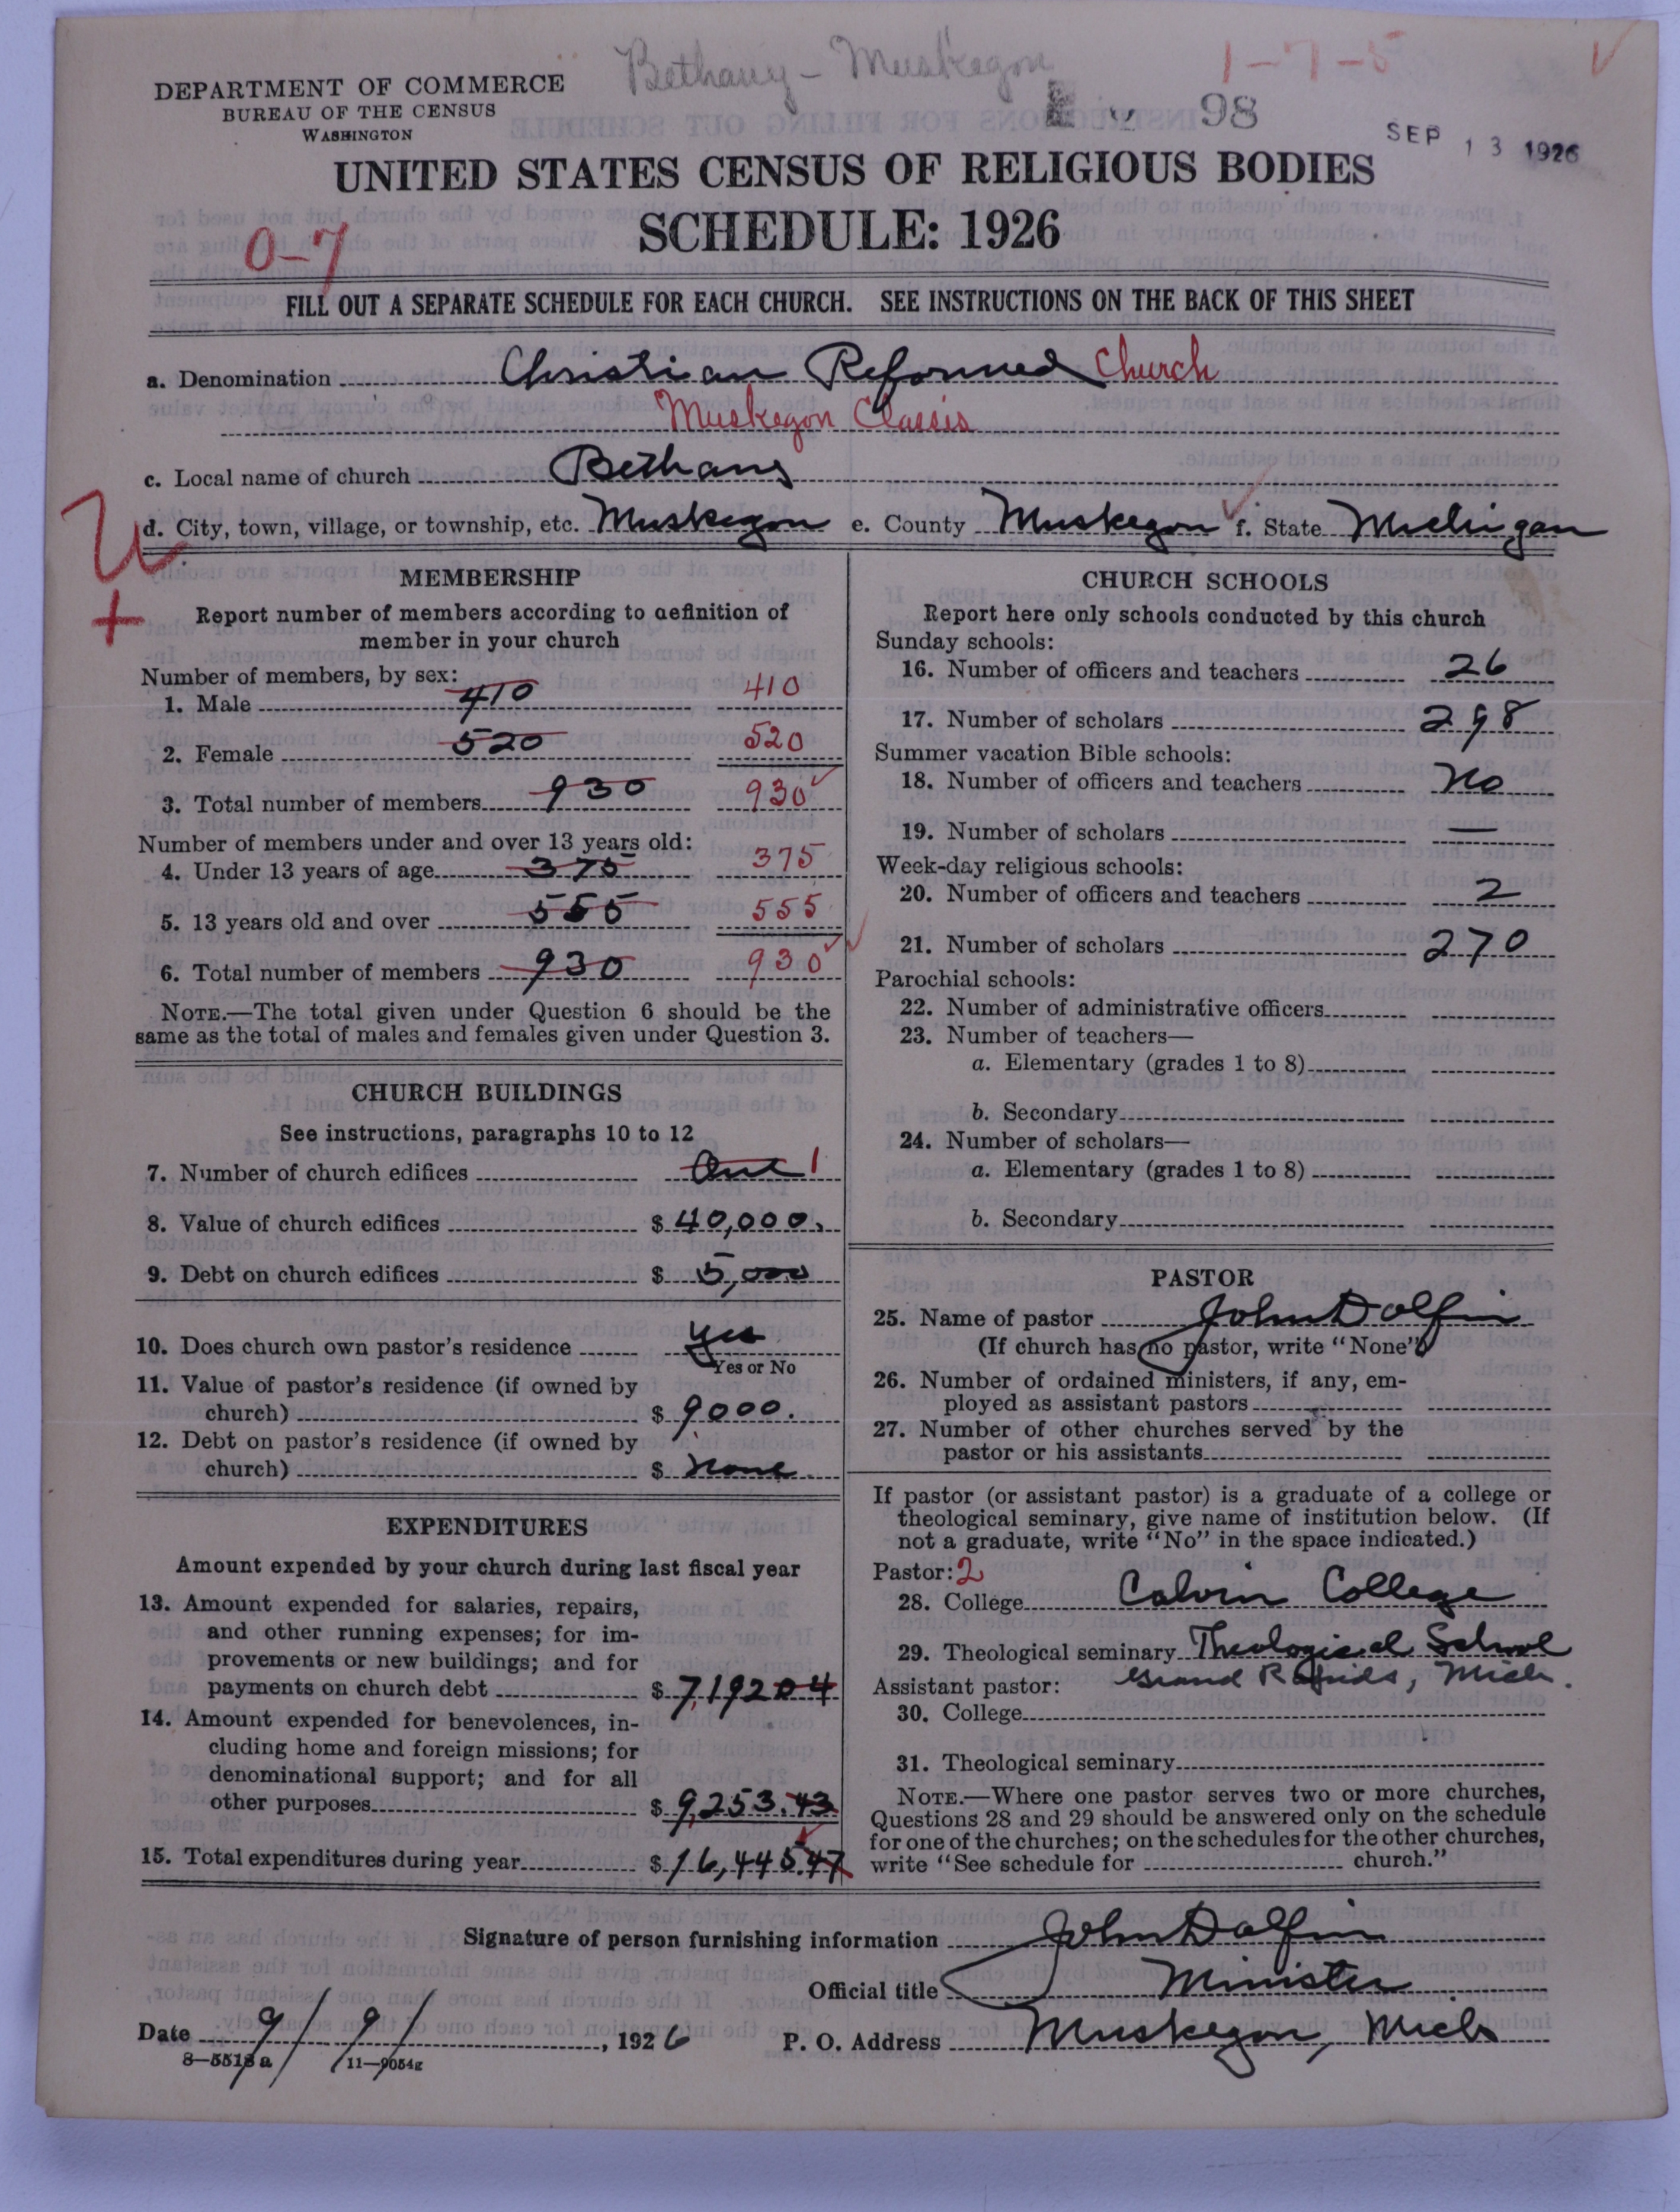 Bethany - Muskegon
1-7-5
DEPARTMENT OF COMMERCE
BUREAU OF THE CENSUS
WASHINGTON
98
SEP 13 1926
UNITED STATES CENSUS OF RELIGIOUS BODIES
SCHEDULE: 1926
0-7
FILL OUT A SEPARATE SCHEDULE FOR EACH CHURCH. SEE INSTRUCTIONS ON THE BACK OF THIS SHEET
a. Denomination Christian Reformed Church
Muskegon Classis
c. Local name of church Bethany
d. City, town, village, or township, etc. Muskegon e. County Muskegon f. State Michigan
MEMBERSHIP
Report number of members according to definition of
member in your church
Number of members, by sex:
1. Male 410 410
2. Female 520 520
3. Total number of members 930 930
Number of members under and over 13 years old:
4. Under 13 years of age 375 375
5. 13 years old and over 555 555
6. Total number of members 930 930
NOTE.—The total given under Question 6 should be the
same as the total of males and females given under Question 3.
CHURCH BUILDINGS
See instructions, paragraphs 10 to 12
7. Number of church edifices One 1
8. Value of church edifices $ 40,000.
9. Debt on church edifices $ 5,000
10. Does church own pastor's residence Yes
Yes or No
11. Value of pastor's residence (if owned by
church) $ 9000.
12. Debt on pastor's residence (if owned by
church) $ None
EXPENDITURES
Amount expended by your church during last fiscal year
13. Amount expended for salaries, repairs,
and other running expenses; for im-
provements or new buildings; and for
payments on church debt $ 7,192 04
14. Amount expended for benevolences, in-
cluding home and foreign missions; for
denominational support; and for all
other purposes $ 9,253.43
15. Total expenditures during year $ 16,445.47
CHURCH SCHOOLS
Report here only schools conducted by this church
Sunday schools:
16. Number of officers and teachers 26
17. Number of scholars 298
Summer vacation Bible schools:
18. Number of officers and teachers No
19. Number of scholars —
Week-day religious schools:
20. Number of officers and teachers 2
21. Number of scholars 270
Parochial schools:
22. Number of administrative officers
23. Number of teachers—
a. Elementary (grades 1 to 8)
b. Secondary
24. Number of scholars—
a. Elementary (grades 1 to 8)
b. Secondary
PASTOR
25. Name of pastor John Dolfin
(If church has no pastor, write "None")
26. Number of ordained ministers, if any, em-
ployed as assistant pastors
27. Number of other churches served by the
pastor or his assistants
If pastor (or assistant pastor) is a graduate of a college or
theological seminary, give name of institution below. (If
not a graduate, write "No" in the space indicated.)
Pastor: 2
28. College Calvin College
29. Theological seminary Theological School
Grand Rapids, Mich.
Assistant pastor:
30. College
31. Theological seminary
NOTE.—Where one pastor serves two or more churches,
Questions 28 and 29 should be answered only on the schedule
for one of the churches; on the schedules for the other churches,
write "See schedule for church."
Signature of person furnishing information John Dolfin
Official title Minister
Date 9/9/, 1926 P. O. Address Muskegon, Mich
8-5513a 11-9054g